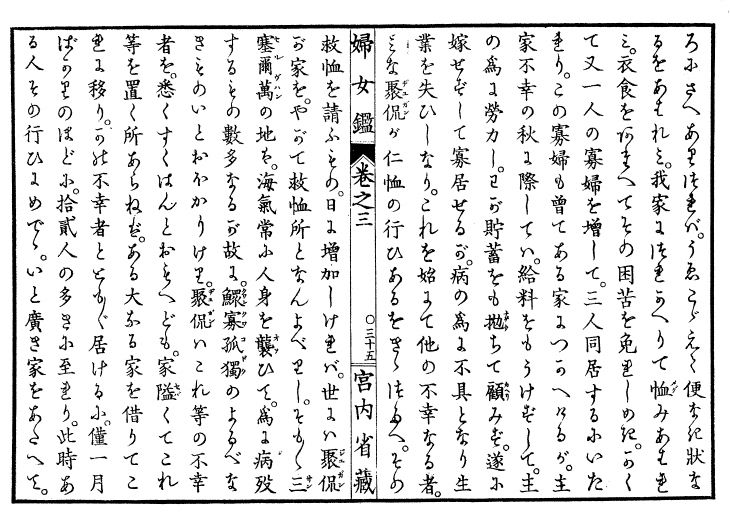 ろにさへありければ。うゑこゞえて便なき状な
るをあはれミ。我家につれかへりて恤みあはれ
ミ。衣食をあたへてその困苦を免れしめき。かく
て又一人の寡婦を増して。三人同居するにいた
れり。この寡婦も曾てある家につかへけるが。主
家不幸の秋に際してハ。給料をもうけずして。主
の為に勞力し。わが貯蓄をも抛ちて顧みず。遂に
嫁せずして寡居せるが。病の為に不具となり生
業を失ひしなり。これを始にて他の不幸なる者。
みな聚侃が仁恤の行ひあるをきゝつたへ。その
婦女鑑 卷之三 ○三十五 宮内省藏
救恤を請ふもの。日に増加しければ。世にハ聚侃
が家を。やがて救恤所となんよべりし。そも〱三
塞爾萬の地は。海氣常に人身を襲ひて。為に病歿
するもの數多なるが故に。鰥寡孤獨のよるべな
きものいとおほかりけり。聚侃ハこれ等の不幸
者を。悉くすくはんとおもへども。家隘くてこれ
等を置く所あらねば。ある大なる家を借りてこ
れに移り。かの不幸者とともに居けるに。僅一月
ばかりのほどに。拾貳人の多きに至れり。此時あ
る人その行ひにめでゝ。いと廣き家をあたへて。